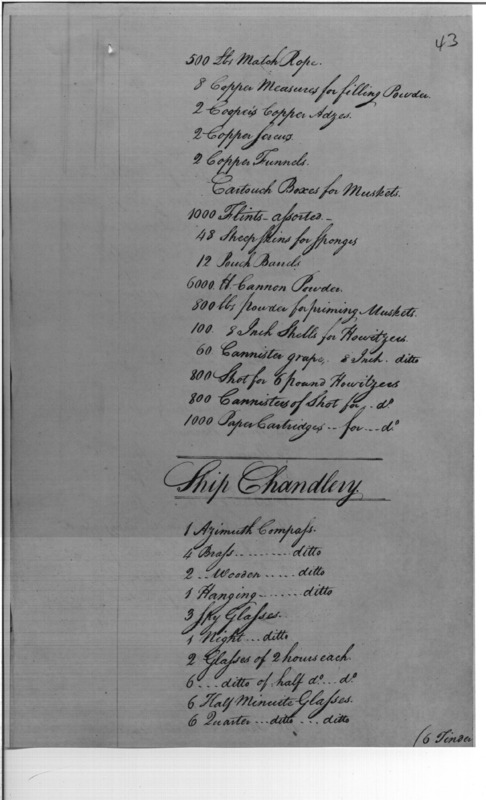 43
500 lbs Match Rope.
8 Copper Measures for filling Powder.
2 Cooper's Copper Adzes.
2 Copper
2 Copper Funnels.
Cartouch Boxes for Muskets.
1000 Flints assorted
48 Sheep Skins for Sponges
12 Pouch
6000. lbs Cannon Powder.
800 lbs powder for priming Muskets.
100. 8 Inch Shells for Howitzers.
60 Cannister grape, 8 Inch. ditto
800 Shot for 6 pound Howitzers
800 Cannisters of Shot for . do
1000 Paper Cartridges .. for ... do.
Ship Chandlery
1 Azimuth Compass.
4 Brass ......... ditto
2 .. Wooden ..... ditto
1 Hanging ...... ditto
3 Spy Glasses.
1 Night ... ditto
2 Glasses of 2 hours each.
6 ... ditto of. half do... do
6 Half Minuite Glasses.
6 Quarter ... ditto ... ditto
(6 Tinder